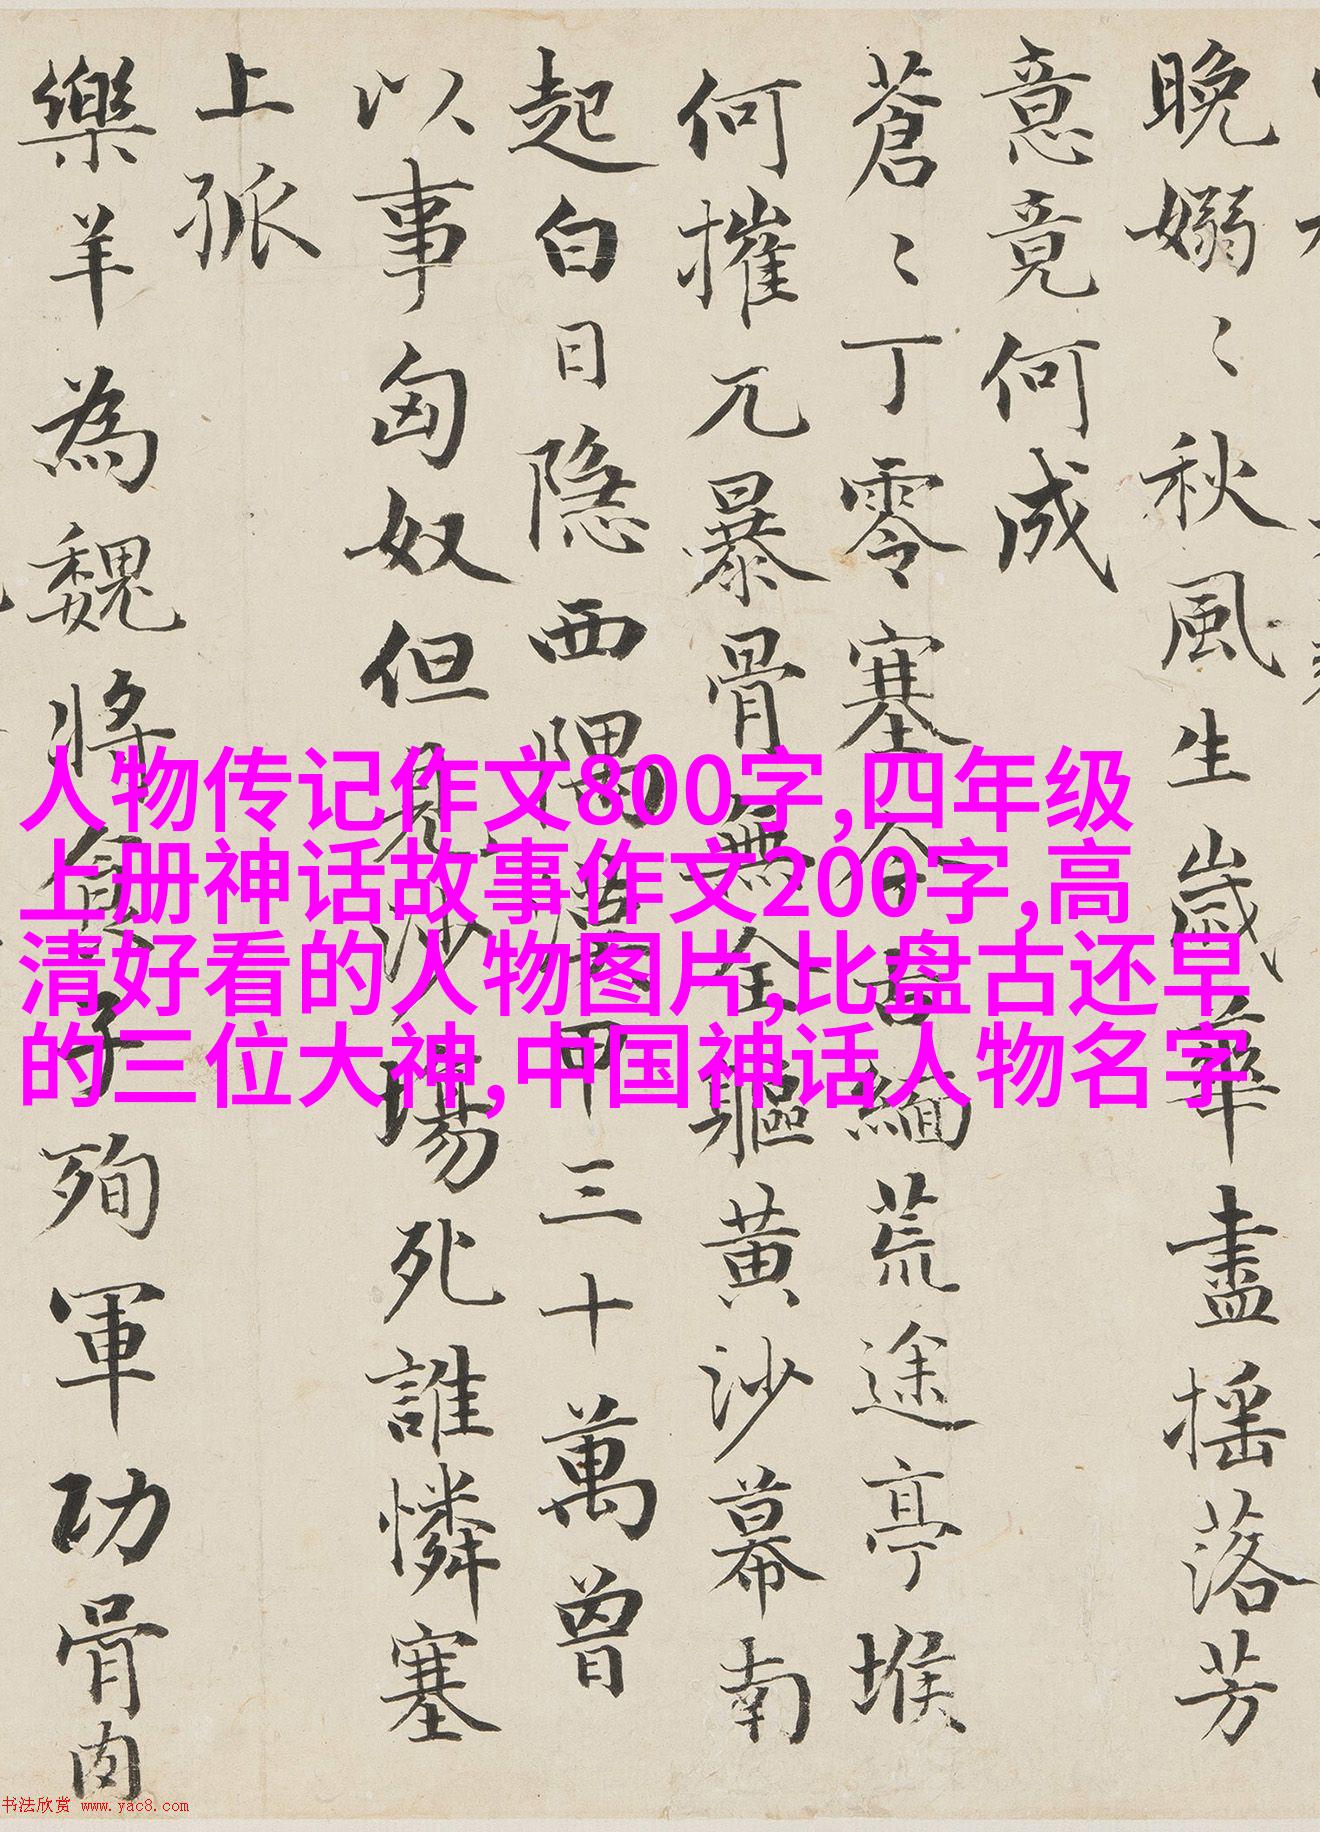 晚嫋〻秋風生歲華盡摇落芳
意竟何成
蒼〻丁零塞今古緬荒途亭堠
何摧兀暴骨無全軀黄沙幕南
起白日隱西隅漢甲三十萬曾
以事匈奴但見沙塲死誰憐塞
上孤
樂羊為魏將食子殉軍功骨肉
人物传记作文800字,四年级
上册神话故事作文200字,高
清好看的人物图片,比盘古还早
的三位大神,中国神话人物名字
书法欣赏 www.yac8.com